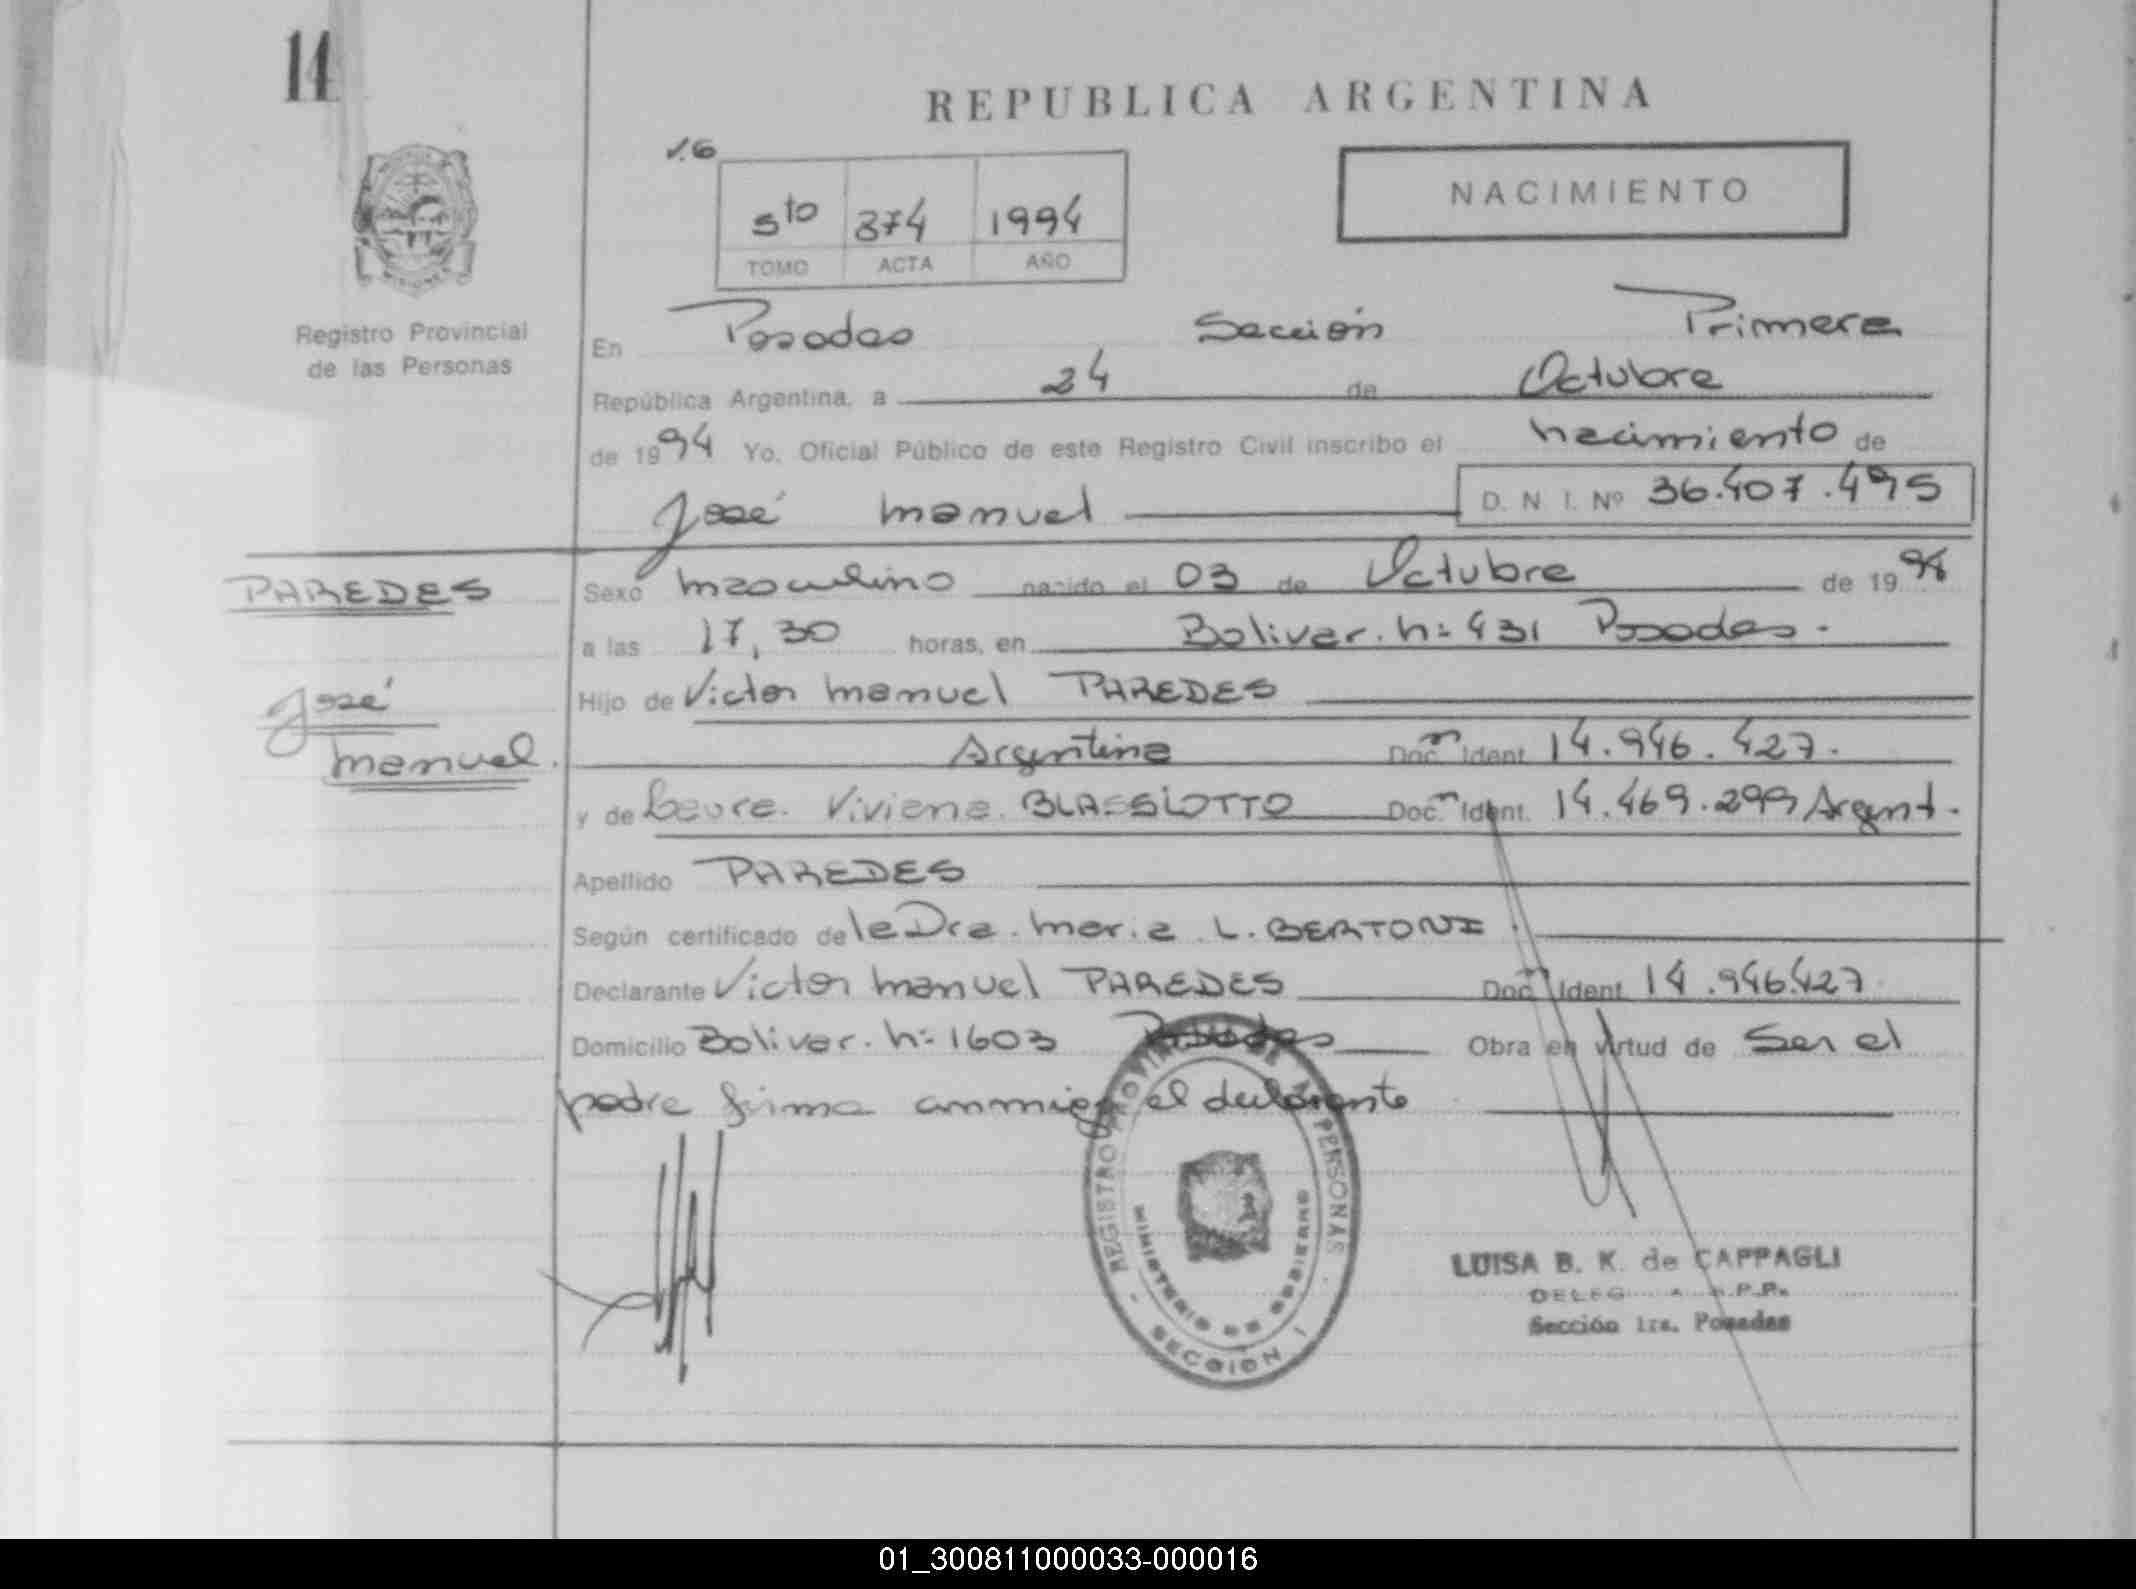 14
REPUBLICA ARGENTINA
NACIMIENTO
5to 374 1994
TOMO ACTA AÑO
Registro Provincial
de las Personas
En Posadas Sección Primera
República Argentina, a 24 de Octubre
de 1994 Yo, Oficial Público de este Registro Civil inscribo el nacimiento de
José Manuel D. N. I. Nº 36.407.495
PAREDES
José
Manuel.
Sexo masculino nacido el 03 de Octubre de 1994
a las 17,30 horas, en Bolivar. nº 431 Posadas.
Hijo de Victor Manuel PAREDES
Argentina Doc. Ident. 14.946.427.
y de Laura. Viviana. BLASSIOTTO Doc. Ident. 14.469.299 Argent.
Apellido PAREDES
Según certificado de la Dra. Maria L. BERTONI
Declarante Victor Manuel PAREDES Doc. Ident. 14.946.427
Domicilio Bolivar. nº 1603 Posadas Obra en virtud de Ser el
padre firma conmigo el declarante
REGISTRO PROVINCIAL DE LAS PERSONAS
MINISTERIO DE GOBIERNO
SECCION 1
LUISA B. K. de CAPPAGLI
Sección 1ra. Posadas
01_300811000033-000016